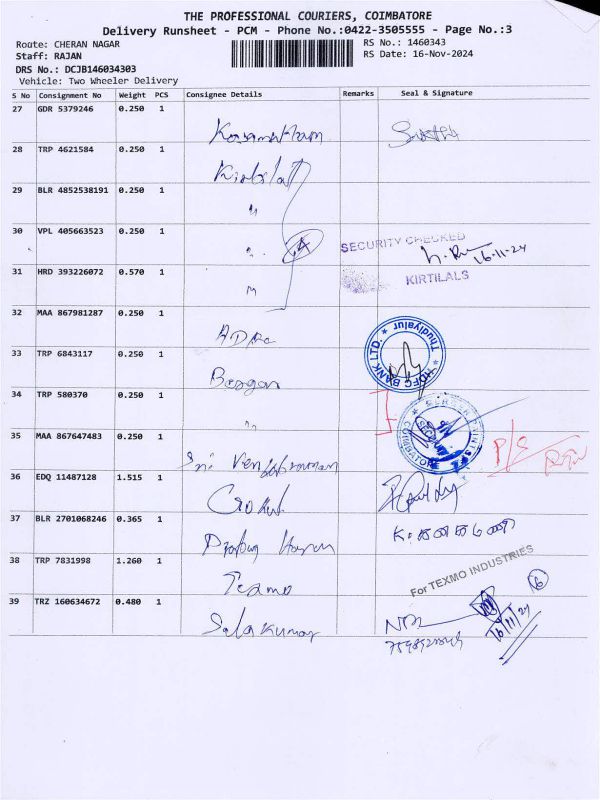 THE PROFESSIONAL COURIERS, COIMBATORE
Delivery Runsheet - PCM - Phone No.:0422-3505555 - Page No.:3
Route: CHERAN NAGAR
RS No.: 1460343
Staff: RAJAN
RS Date: 16-Nov-2024
DRS No.: DCJB146034303
Vehicle: Two Wheeler Delivery
S No Consignment No Weight PCS Consignee Details Remarks Seal & Signature
27 GDR 5379246 0.250 1
28 TRP 4621584 0.250 1
29 BLR 4852538191 0.250 1
30 VPL 405663523 0.250 1
SECURITY CHECKED
16-11-24
31 HRD 393226072 0.570 1
KIRTILALS
32 MAA 867981287 0.250 1
HDFC BANK LTD. Thudiyalur
33 TRP 6843117 0.250 1
34 TRP 580370 0.250 1
COIMBATORE
35 MAA 867647483 0.250 1
Sri
P/S
36 EDQ 11487128 1.515 1
Gokul
37 BLR 2701068246 0.365 1
38 TRP 7831998 1.260 1
For TEXMO INDUSTRIES
Texmo
39 TRZ 160634672 0.480 1
16/11/24